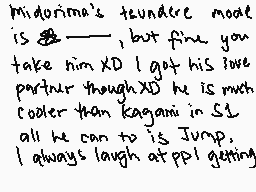 Midorima's tsundere mode
is ——, but fine you
take him XD I got his love
partner though XD he is much
cooler than Kagami in S1
all he can to is Jump.
I always laugh at ppl getting